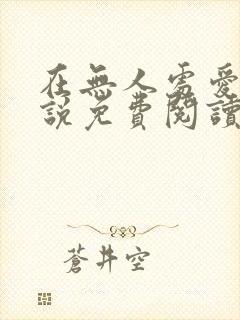 在無人處愛
說免費閱讀
蒼井空